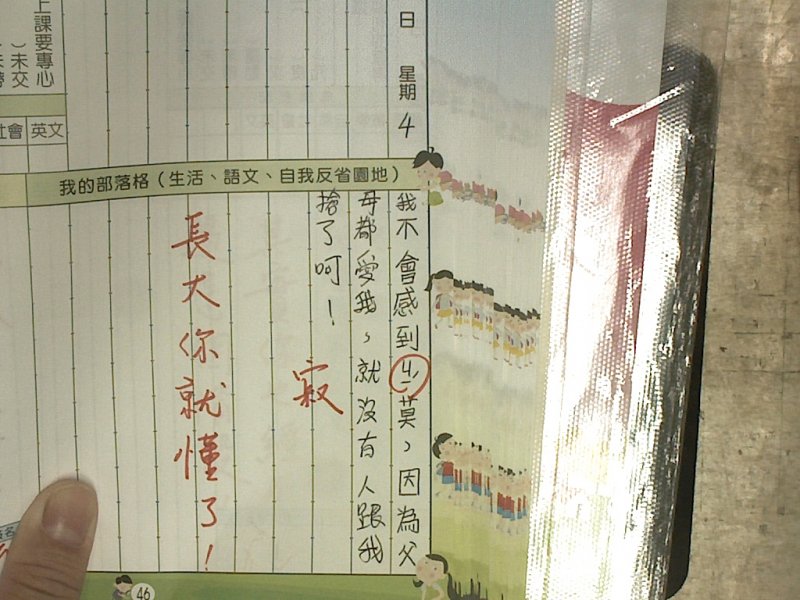 日　星期4
上課要專心
）未交
社會
英文
我的部落格（生活、語文、自我反省園地）
我不會感到ㄐㄧˊ莫，因為父
母都愛我，就沒有人跟我
搶了呵！
寂
長大你就懂了！
46